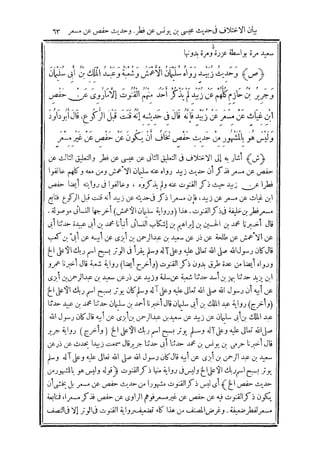 بيان الاختلاف فى حديث عيسى بن يونس عن فطر. وحديث حفص عن مسعر ٦٣
سعيد مرة بواسطة عزرة ومرة بدونها
﴿ص﴾ وَحَدِيثُ زُبَيْدٍ رَوَاهُ سُلَيْمَانُ الْأَعْمَشُ وَشُعْبَةُ وَعَبْدُ الْمَلِكِ بْنُ أَبِى سُلَيْمَانَ
وَجَرِيرُ بْنُ حَازِمٍ كُلُّهُمْ عَنْ زُبَيْدٍ لَمْ يَذْكُرْ أَحَدٌ مِنْهُمُ الْقُنُوتَ إِلَّا مَا رُوِىَ عَنْ حَفْصِ
ابْنِ غِيَاثٍ عَنْ مِسْعَرٍ عَنْ زُبَيْدٍ فَإِنَّهُ قَالَ فِى حَدِيثِهِ إِنَّهُ قَنَتَ قَبْلَ الرُّكُوعِ. قَالَ أَبُو دَاوُدَ
وَلَيْسَ هُوَ بِالْمَشْهُورِ مِنْ حَدِيثِ حَفْصٍ نَخَافُ أَنْ يَكُونَ عَنْ حَفْصٍ عَنْ غَيْرِ مِسْعَرٍ
﴿ش﴾ أشار به إلى الاختلاف فى التعليق الثانى عن عيسى عن فطر والتعليق الثالث عن
حفص عن مسعر فذكر أن حديث زبيد رواه عنه سليمان الأعمش ومن معه وكلهم خالفوا
فطرا عن زبيد حيث ذكر القنوت عنه ولم يذكروه ، وخالفوا فى روايته أيضا حفص
ابن غياث عن مسعر عن زبيد، فإن مسعرا ذكر فى حديثه عن زبيد أنه قنت قبل الركوع فتابع
مسعر فطر بن خليفة فى ذكر القنوت . هذا ﴿ورواية سليمان الأعمش﴾ أخرجها النسائى موصولة .
قال أخبرنا محمد بن الحسين بن إبراهيم بن إشكاب النسائى أنبأنا محمد بن أبى عبيدة حدثنا أبى
عن الأعمش عن طلحة عن ذر عن سعيد بن عبد الرحمن بن أبزى عن أبيه عن أبىّ بن كعب
قال كان رسول الله صلى الله تعالى عليه وعلى آله وسلم يقرأ فى الوتر بسبح اسم ربك الأعلى الخ
ورواه أيضا من عدة طرق بدون ذكر القنوت ﴿وأخرج أيضا﴾ رواية شعبة قال أخبرنا عمرو
ابن يزيد حدثنا بهز بن أسد حدثنا شعبة عن سلمة وزبيد عن ذر عن سعيد بن عبد الرحمن بن أبزى
عن أبيه أن رسول الله صلى الله تعالى عليه وعلى آله وسلم كان يوتر بسبح اسم ربك الأعلى الخ
﴿وأخرج﴾ رواية عبد الملك بن أبى سليمان قال أخبرنا أحمد بن سليمان حدثنا محمد بن عبيد حدثنا
عبد الملك بن أبى سليمان عن زبيد عن سعيد بن عبد الرحمن بن أبزى عن أبيه قال كان رسول الله
صلى الله تعالى عليه وعلى آله وسلم يوتر بسبح اسم ربك الأعلى الخ ﴿وأخرج﴾ رواية جرير
قال أخبرنا حرمى بن يونس بن محمد حدثنا أبى حدثنا جرير قال سمعت زبيدا يحدث عن ذر عن
سعيد بن عبد الرحمن بن أبزى عن أبيه قال كان رسول الله صلى الله تعالى عليه وعلى آله وسلم
يوتر بسبح اسم ربك الأعلى الخ وليس فى رواية منها ذكر القنوت ﴿قوله وليس هو بالمشهور من
حديث حفص الخ﴾ أى ليس ذكر القنوت مشهورا من حديث حفص عن مسعر بل يخشى أن
يكون ذكر القنوت فيه عن حفص عن غير مسعر فوهم الراوى عن حفص فذكر مسعرا، فمتابعة
مسعر لفطر ضعيفة . وغرض المصنف من هذا كله تضعيف رواية القنوت فى الوتر إلا فى النصف